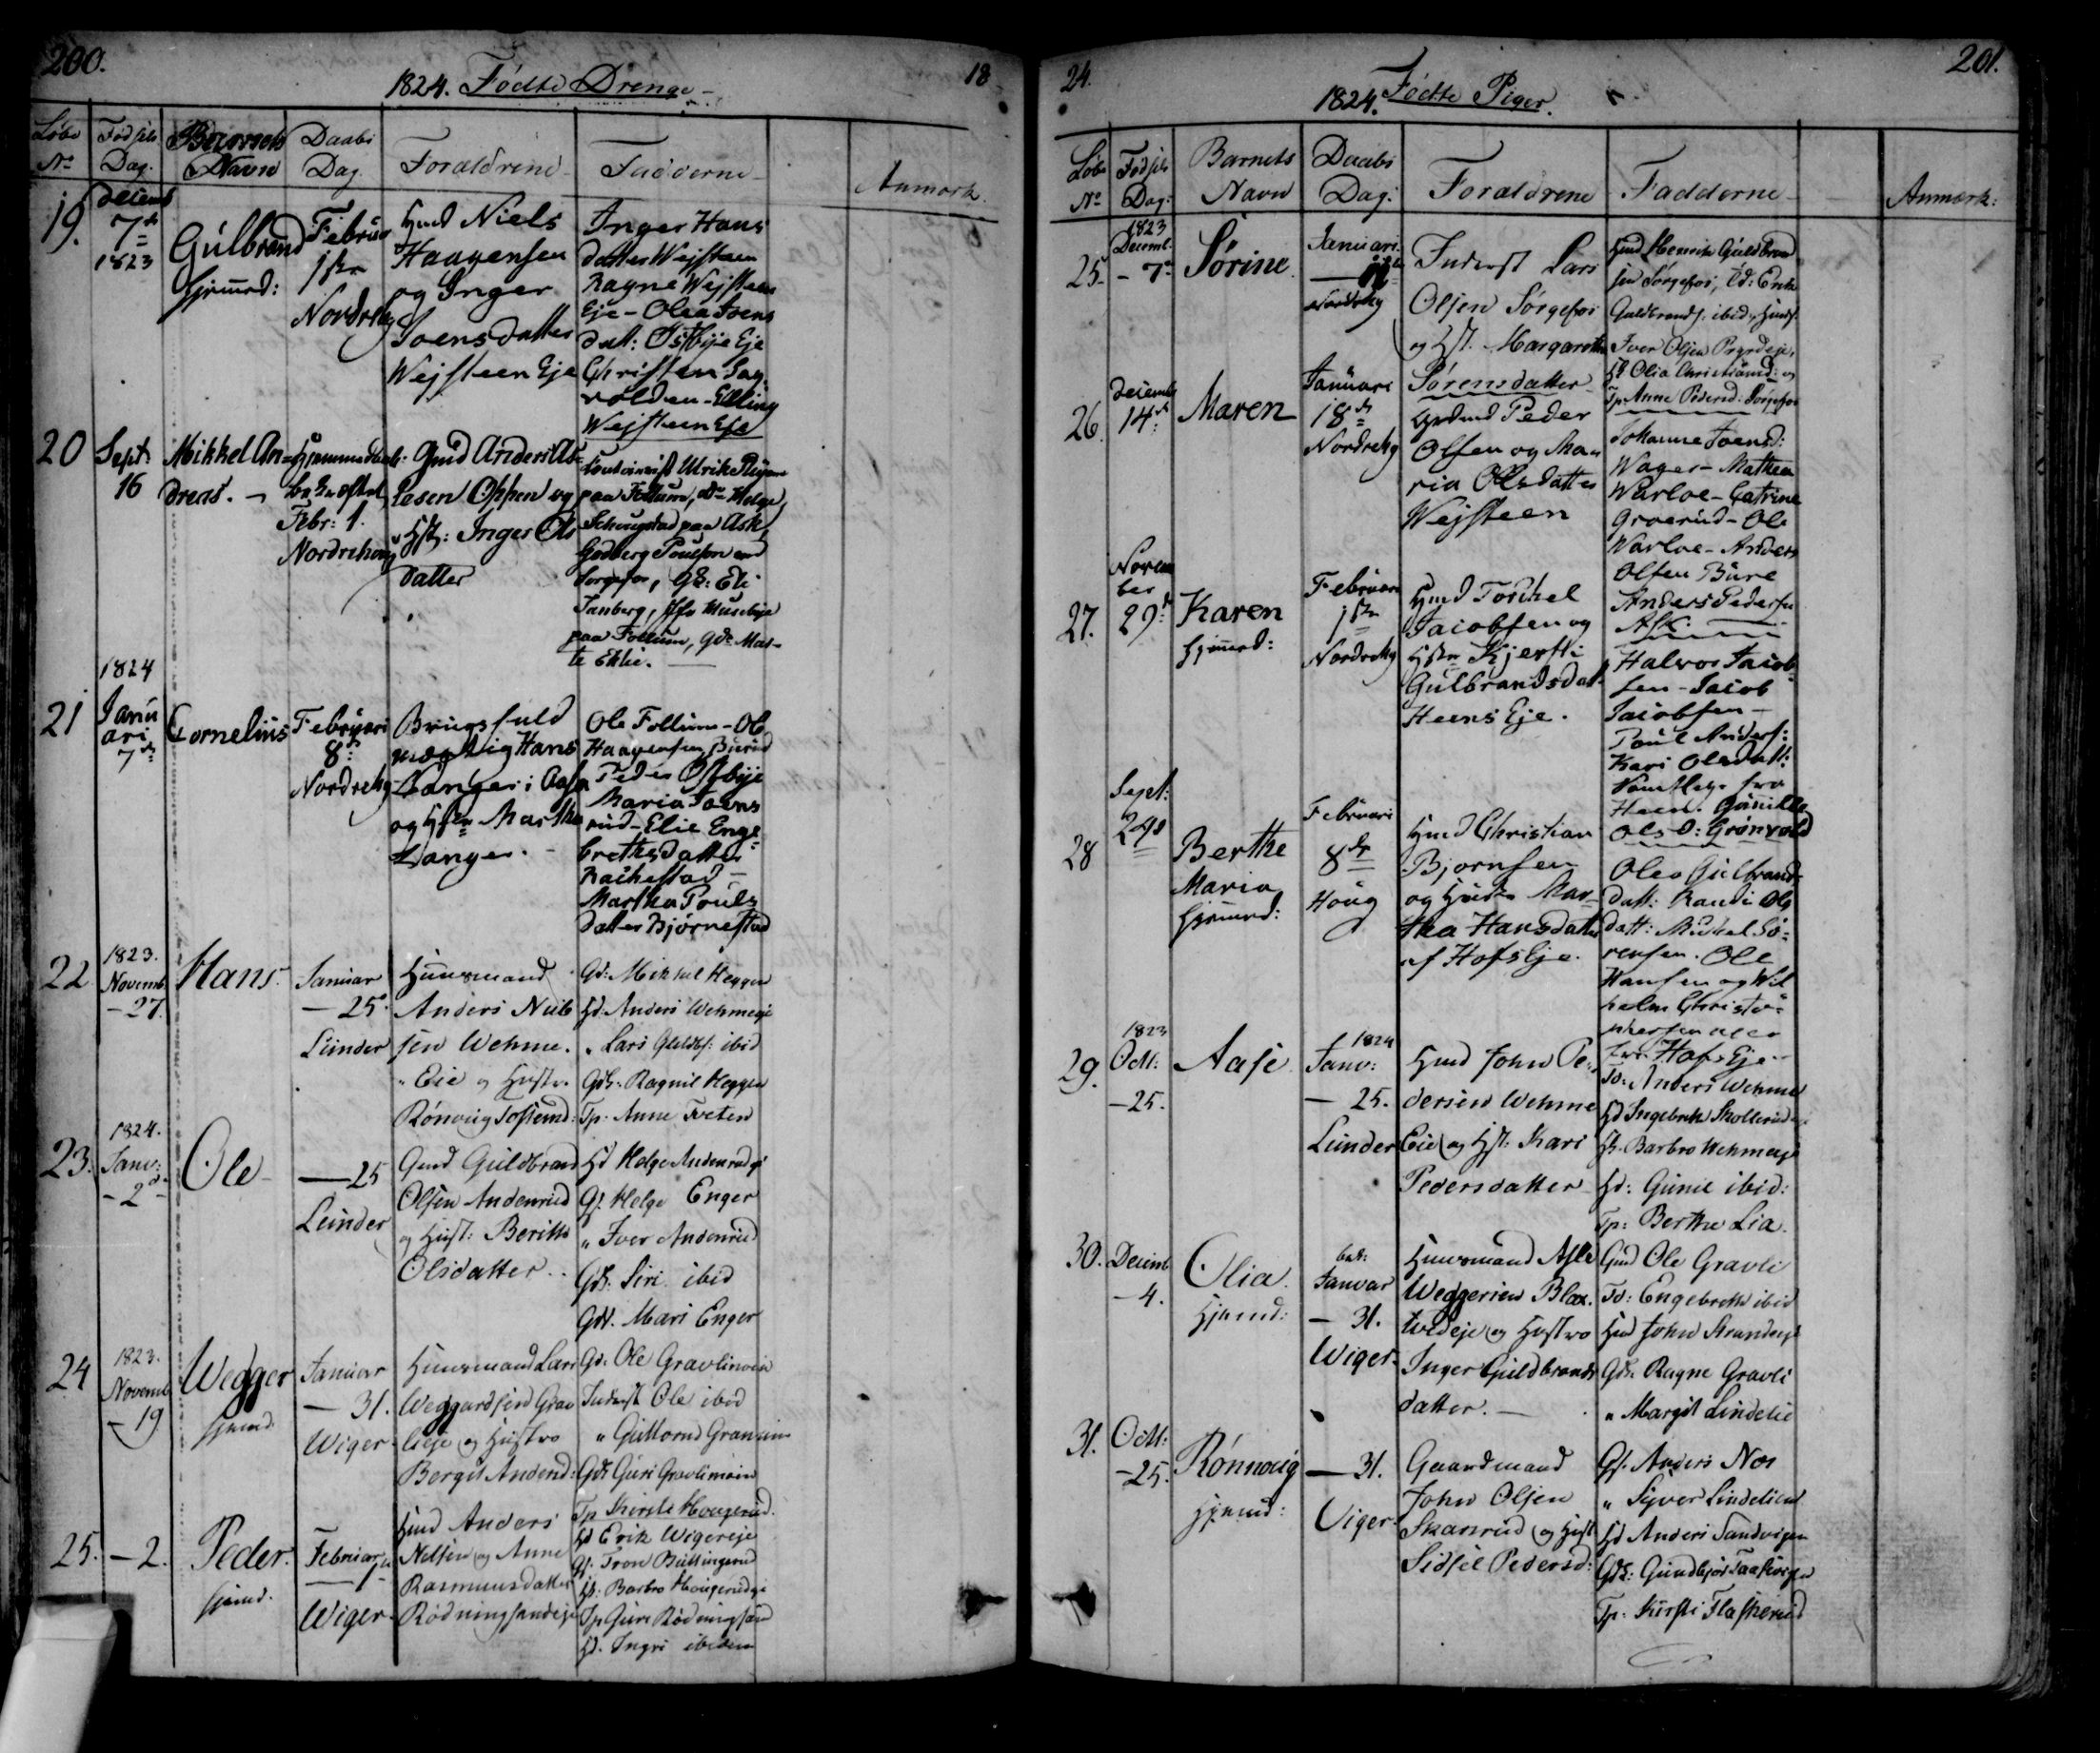 200.
1824. Fødte Drenge
18
Løbe No
Fødsels Dag.
Barnets Navn
Daabs Dag
Forældrene
Fadderne
Anmærk.
19.
Decemb 7de 1823
Gulbrand
Hjemmed:
Februar 1ste
Nordrehg
Hmd Niels
Haagensen
og Inger
Joensdatter
Wejsteen Eje
Inger Hans
datter Wejsteen
Ragne Wejsteen
Eje - Olea Joens
datt: Østbye Eje
Christen
Elling
Wejsteen Eje
20
Sept: 16
Mikkel An=
dreas.
Hjemmedaab
Febr: 1.
Nordrehoug
Gmd Anders
Oppen og
Hst: Inger Ols
datter
Ulrike
paa Follum, Helge
paa Ask,
Gudberg Poulson
Sørgefos, Eli
Tanberg,
paa Follum,
21
1824
Janu
ari
7de
Cornelius
Februari
8de
Nordrehg
Brugsfuld
mægtig Hans
Langer i Aasa
og Hstr Marthe
Langer.
Ole Follum - Ole
Haagensen Bjerud
Peder Østbye
Maria Joens
rud - Elie Enge
brethsdatter
Rackestad
Martha Pouls
datter Bjørnestad
22
1823.
Novemb
- 27.
Hans.
Januar
- 25.
Lunder
Huusmand
Anders Niel
sen Wehme.
Eie og Hustr.
Rønnug Tostensd:
Gd: Mikkel Heggen
Hd. Anders Wehmeeje
" Lars Guldbs: ibid
Gdk. Ragnil Heggen
Tp. Anne Tveten
23.
1824.
Janv:
- 2d -
Ole
- 25
Lunder
Gmd Guldbrand
Olsen Andenrud
og Hust: Berithe
Olsdatter.
Hd Helge Andenrudeje
Gs. Helge Enger
" Iver Andenrud
Gdk. Siri ibid
Gdk. Mari Enger
24
1823.
Novemb
- 19
Wegger
hjemd.
Januar
- 31.
Wiger
Huusmand Lars
Weggardsen Grav
lieje og Hustro
Bergit Andersd:
Gd: Ole Gravlimoin
Inderst Ole ibid
" Guttorm
Gdk Guri Gravlimoin
Tp Kirsti Hougerud.
25.
- 2.
Peder.
hjemd.
Februar
- 1
Wiger
Hmd Anders
Nilsen og Anne
Rasmusdatter
Rødningsandeje
Hd Erik Wigereje
Gs. Tron Buttingsrud
Hk. Barbro Hougerudeje
Tp Guri Rødningsand
Hd. Ingri ibidem
24.
1824. Fødte Piger
201.
Løbe No
Fødsels Dag:
Barnets Navn
Daabs Dag:
Forældrene
Fadderne
Anmærk:
25
1823
Decemb.
- 7de
Sørine
Januari.
Nordrehg
Inderst Lars
Olsen Sørgefos
og Hst. Margarethe
Sørensdatter
Hmd Guldbrand
sen Sørgefos, Erik
Guldbrands. ibid,
Iver Olsen
Olia Christiansd: og
Tp. Anne Pedersd: Sørgefos
26.
Decemb
14de
Maren
Januari
18de
Nordrehg
Peder
Olsen og Ma
ria Olsdatter
Wejsteen
Johanne Joensd:
Wager - Mathea
Warloe - Catrine
Groerud - Ole
Warloe - Anders
Olsen Bure
Anders Pedersen
Ask
27.
Novem
ber
29de
Karen
Hjemmed:
Februari
1ste
Nordrehg
Hmd Torchel
Jacobsen og
Hstr Kjersti
Gulbrandsdatt
Heens Eje.
Halvor Jacob
sen - Jacob
Jacobsen -
Poul Anders:
Kari Olsdatt:
Samtlige fra
Heen. Gunild
Olsd: Grønvold
28
Sept:
29de
Berthe
Maria
Hjemmed:
Februari
8de
Houg
Hmd Christian
Bjørnsen
og Hustr Mar
tha Hansdatter
af Hofs Eje.
Olea Gulbrands
datt: Randi Ols
datt: Mickel Sø=
rensen. Ole
Hansen og Wil
helm Christo=
phersen alle
fra Hofs Eje
29.
1823
Octb:
- 25.
Aase
1824
Janv:
- 25.
Lunder
Hmd John Pe=
dersen Wehme
Eie og Hst: Kari
Pedersdatter
Anders Wehme
Hd Ingebreth Skollerud
Hk. Barbro Wehmeeje
Hd: Gunil ibid:
Tp: Berthe Lia.
30.
Decemb
- 4.
Olia.
Hjemd:
Januar
- 31.
Wiger.
Huusmand Asle
Weggersen Blax.
tvedeje og Hustro
Inger Guldbrands
datter.
Gmd Ole Gravli
Engebreth ibid
Hmd John Strandeje
Gdk. Ragne Gravli
" Margit Lindelie
31.
Octb:
- 25.
Rønnoug
Hjemd:
- 31.
Viger.
Gaardmand
John Olsen
Skarrud og Hust
Sidsel Pedersd:
Gs. Anders Næs
" Syver Lindelien
Hd Anders Sandvigen
Gdk: Gundbjør
Tp: Kirsti Flaskerud